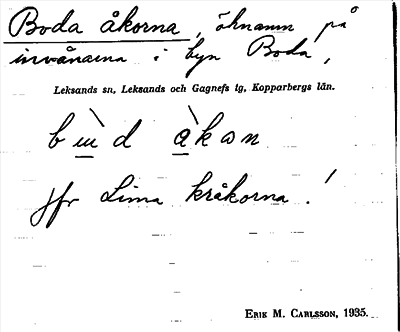 Boda åkorna, öknamn på
invånarna i byn Boda,
Leksands sn, Leksands och Gagnefs tg, Kopparbergs län.
jfr Lima kråkorna!
ERIK M. CARLSSON, 1935.